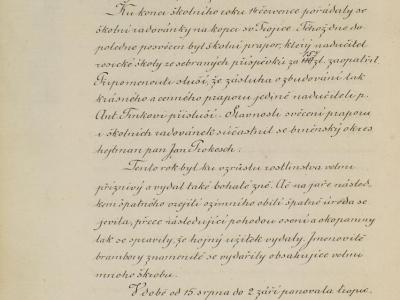 Ku konci školního roku 14 července pořádaly se
školní radovánky na kopci sv Trojice. Téhož dne do
poledne posvěcen byl školní prapor, který nadučitel
rosické školy ze sebraných příspěvků za 157 zl. zaopatřil.
Připomenouti sluší, že zásluha o zbudování tak
krásného a cenného praporu jedině nadučiteli p.
Ant. Finkovi přísluší. Slavnosti svěcení praporu
i školních radovánek súčastnil se brněnský okres
hejtman pan Jan Prokesch:
Tento rok byl ku vzrůstu rostlinstva velmi
příznivý a vydal také bohaté žně. Ač na jaře násled
kem špatného vzejití ozimního obilí špatná úroda se
jevila, přece následující pohodou osení a okopaniny
tak se spravily, že hojný užitek vydaly. Jmenovitě
brambory znamenitě se vydařily obsahujíce velmi
mnoho škrobu.
V době od 15 srpna do 2 září panovala tropic.